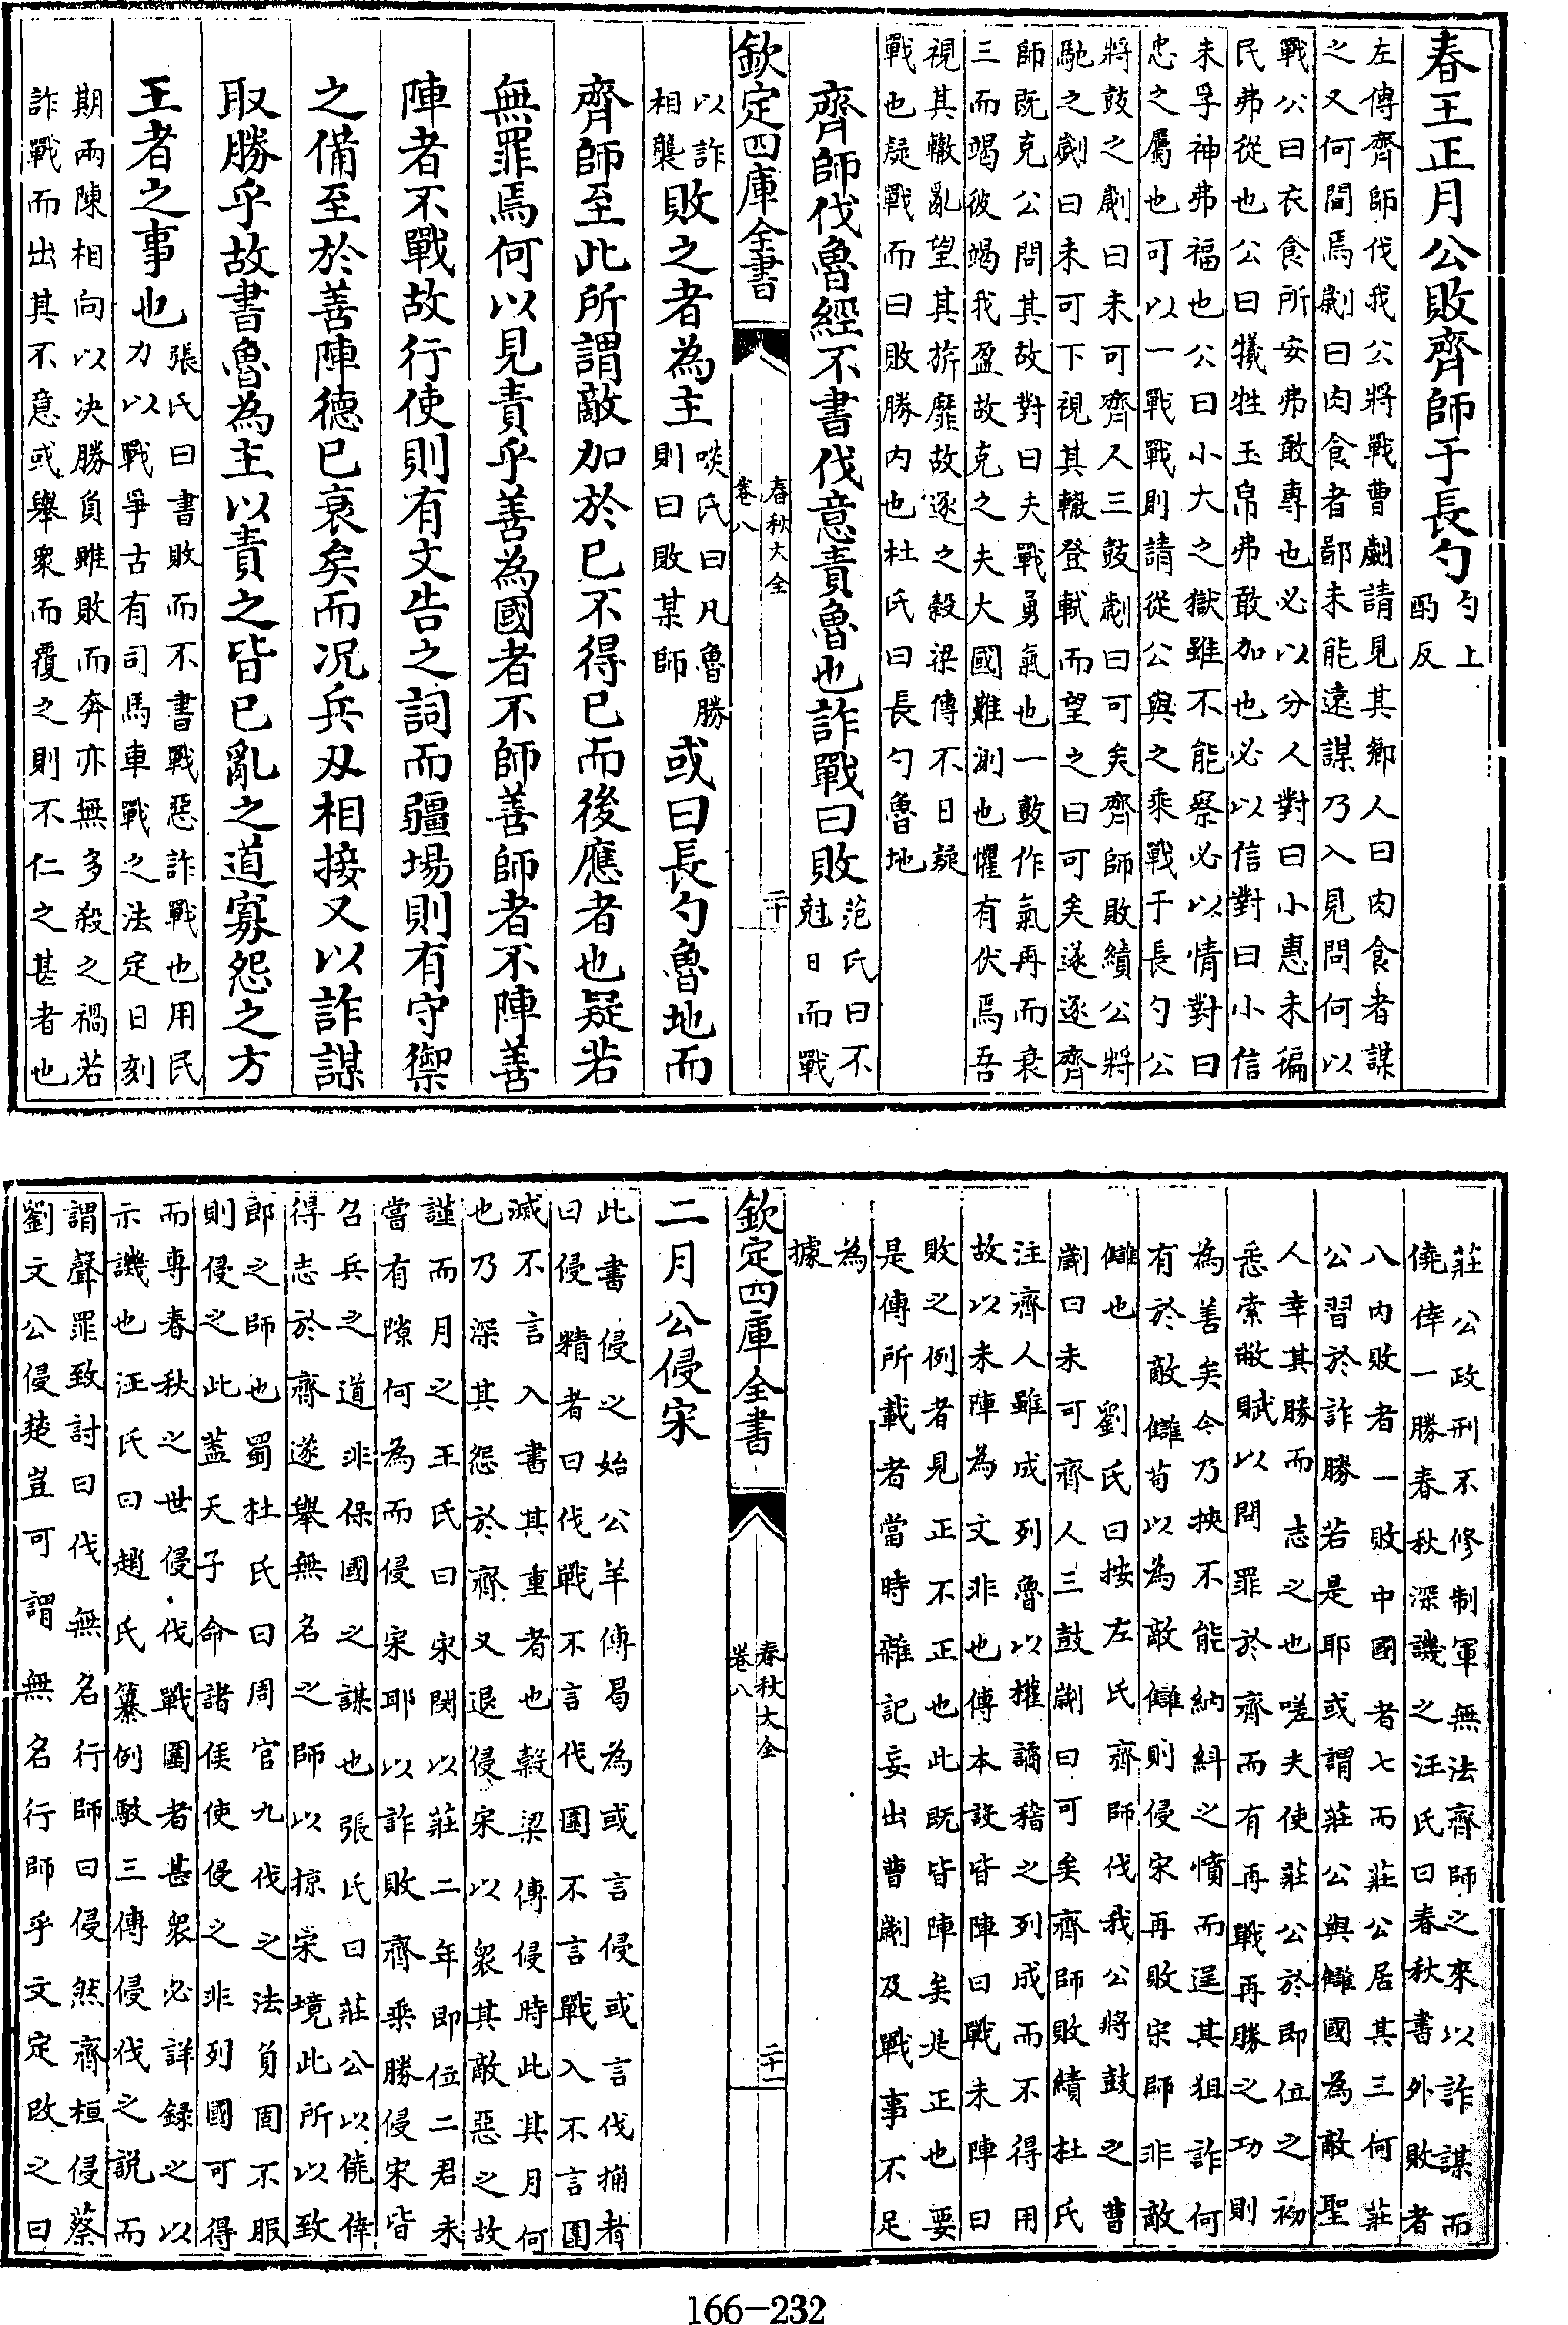 春王正月公敗齊師于長勺勺上
酌反
左傳齊師伐我公將戰曹劌請見其鄉人曰肉食者謀
之又何間焉劌曰肉食者鄙未能遠謀乃入見問何以
戰公曰衣食所安弗敢專也必以分人對曰小惠未徧
民弗從也公曰犧牲玉帛弗敢加也必以信對曰小信
未孚神弗福也公曰小大之獄雖不能察必以情對曰
忠之屬也可以一戰戰則請從公與之乘戰于長勺公
將鼓之劌曰未可齊人三鼓劌曰可矣齊師敗績公將
馳之劌曰未可下視其轍登軾而望之曰可矣遂逐齊
師既克公問其故對曰夫戰勇氣也一鼓作氣再而衰
三而竭彼竭我盈故克之夫大國難測也懼有伏焉吾
視其轍亂望其旂靡故逐之穀梁傳不日疑
戰也疑戰而曰敗勝內也杜氏曰長勺魯地
齊師伐魯經不書伐意責魯也詐戰曰敗范氏曰不
尅日而戰
欽定四庫全書
春秋大全
卷八
二十
以詐
相襲敗之者為主啖氏曰凡魯勝
則曰敗某師或曰長勺魯地而
齊師至此所謂敵加於已不得已而後應者也疑若
無罪焉何以見責乎善為國者不師善師者不陣善
陣者不戰故行使則有文告之詞而疆埸則有守禦
之備至於善陣德已衰矣而况兵刃相接又以詐謀
取勝乎故書魯為主以責之皆已亂之道寡怨之方
王者之事也張氏曰書敗而不書戰惡詐戰也用民
力以戰爭古有司馬車戰之法定日刻
期兩陳相向以决勝負雖敗而奔亦無多殺之禍若
詐戰而出其不意或舉衆而覆之則不仁之甚者也
莊公政刑不修制軍無法齊師之來以詐謀而
僥倖一勝春秋深譏之汪氏曰春秋書外敗者
八內敗者一敗中國者七而莊公居其三何莊
公習於詐勝若是耶或謂莊公與讎國為敵聖
人幸其勝而志之也嗟夫使莊公於即位之初
悉索敝賦以問罪於齊而有再戰再勝之功則
為善矣今乃挾不能納糾之憤而逞其狙詐何
有於敵讎茍以為敵讎則侵宋再敗宋師非敵
讎也劉氏曰按左氏齊師伐我公將鼓之曹
劌曰未可齊人三鼓劌曰可矣齊師敗績杜氏
注齊人雖成列魯以權譎稽之列成而不得用
故以未陣為文非也傳本設皆陣曰戰未陣曰
敗之例者見正不正也此既皆陣矣是正也要
是傳所載者當時雜記妄出曹劌及戰事不足
為
據
欽定四庫全書
春秋大全
卷八
二十一
二月公侵宋
此書侵之始公羊傳曷為或言侵或言伐觕者
曰侵精者曰伐戰不言伐圍不言戰入不言圍
滅不言入書其重者也穀梁傳侵時此其月何
也乃深其怨於齊又退侵宋以衆其敵惡之故
謹而月之王氏曰宋閔以莊二年即位二君未
嘗有隙何為而侵宋耶以詐敗齊乘勝侵宋皆
召兵之道非保國之謀也張氏曰莊公以僥倖
得志於齊遂舉無名之師以掠宋境此所以致
郎之師也蜀杜氏曰周官九伐之法負固不服
則侵之此蓋天子命諸侯使侵之非列國可得
而專春秋之世侵伐戰圍者甚衆必詳錄之以
示譏也汪氏曰趙氏纂例駮三傳侵伐之説而
謂聲罪致討曰伐無名行師曰侵然齊桓侵蔡
劉文公侵楚豈可謂無名行師乎文定改之曰
166—232